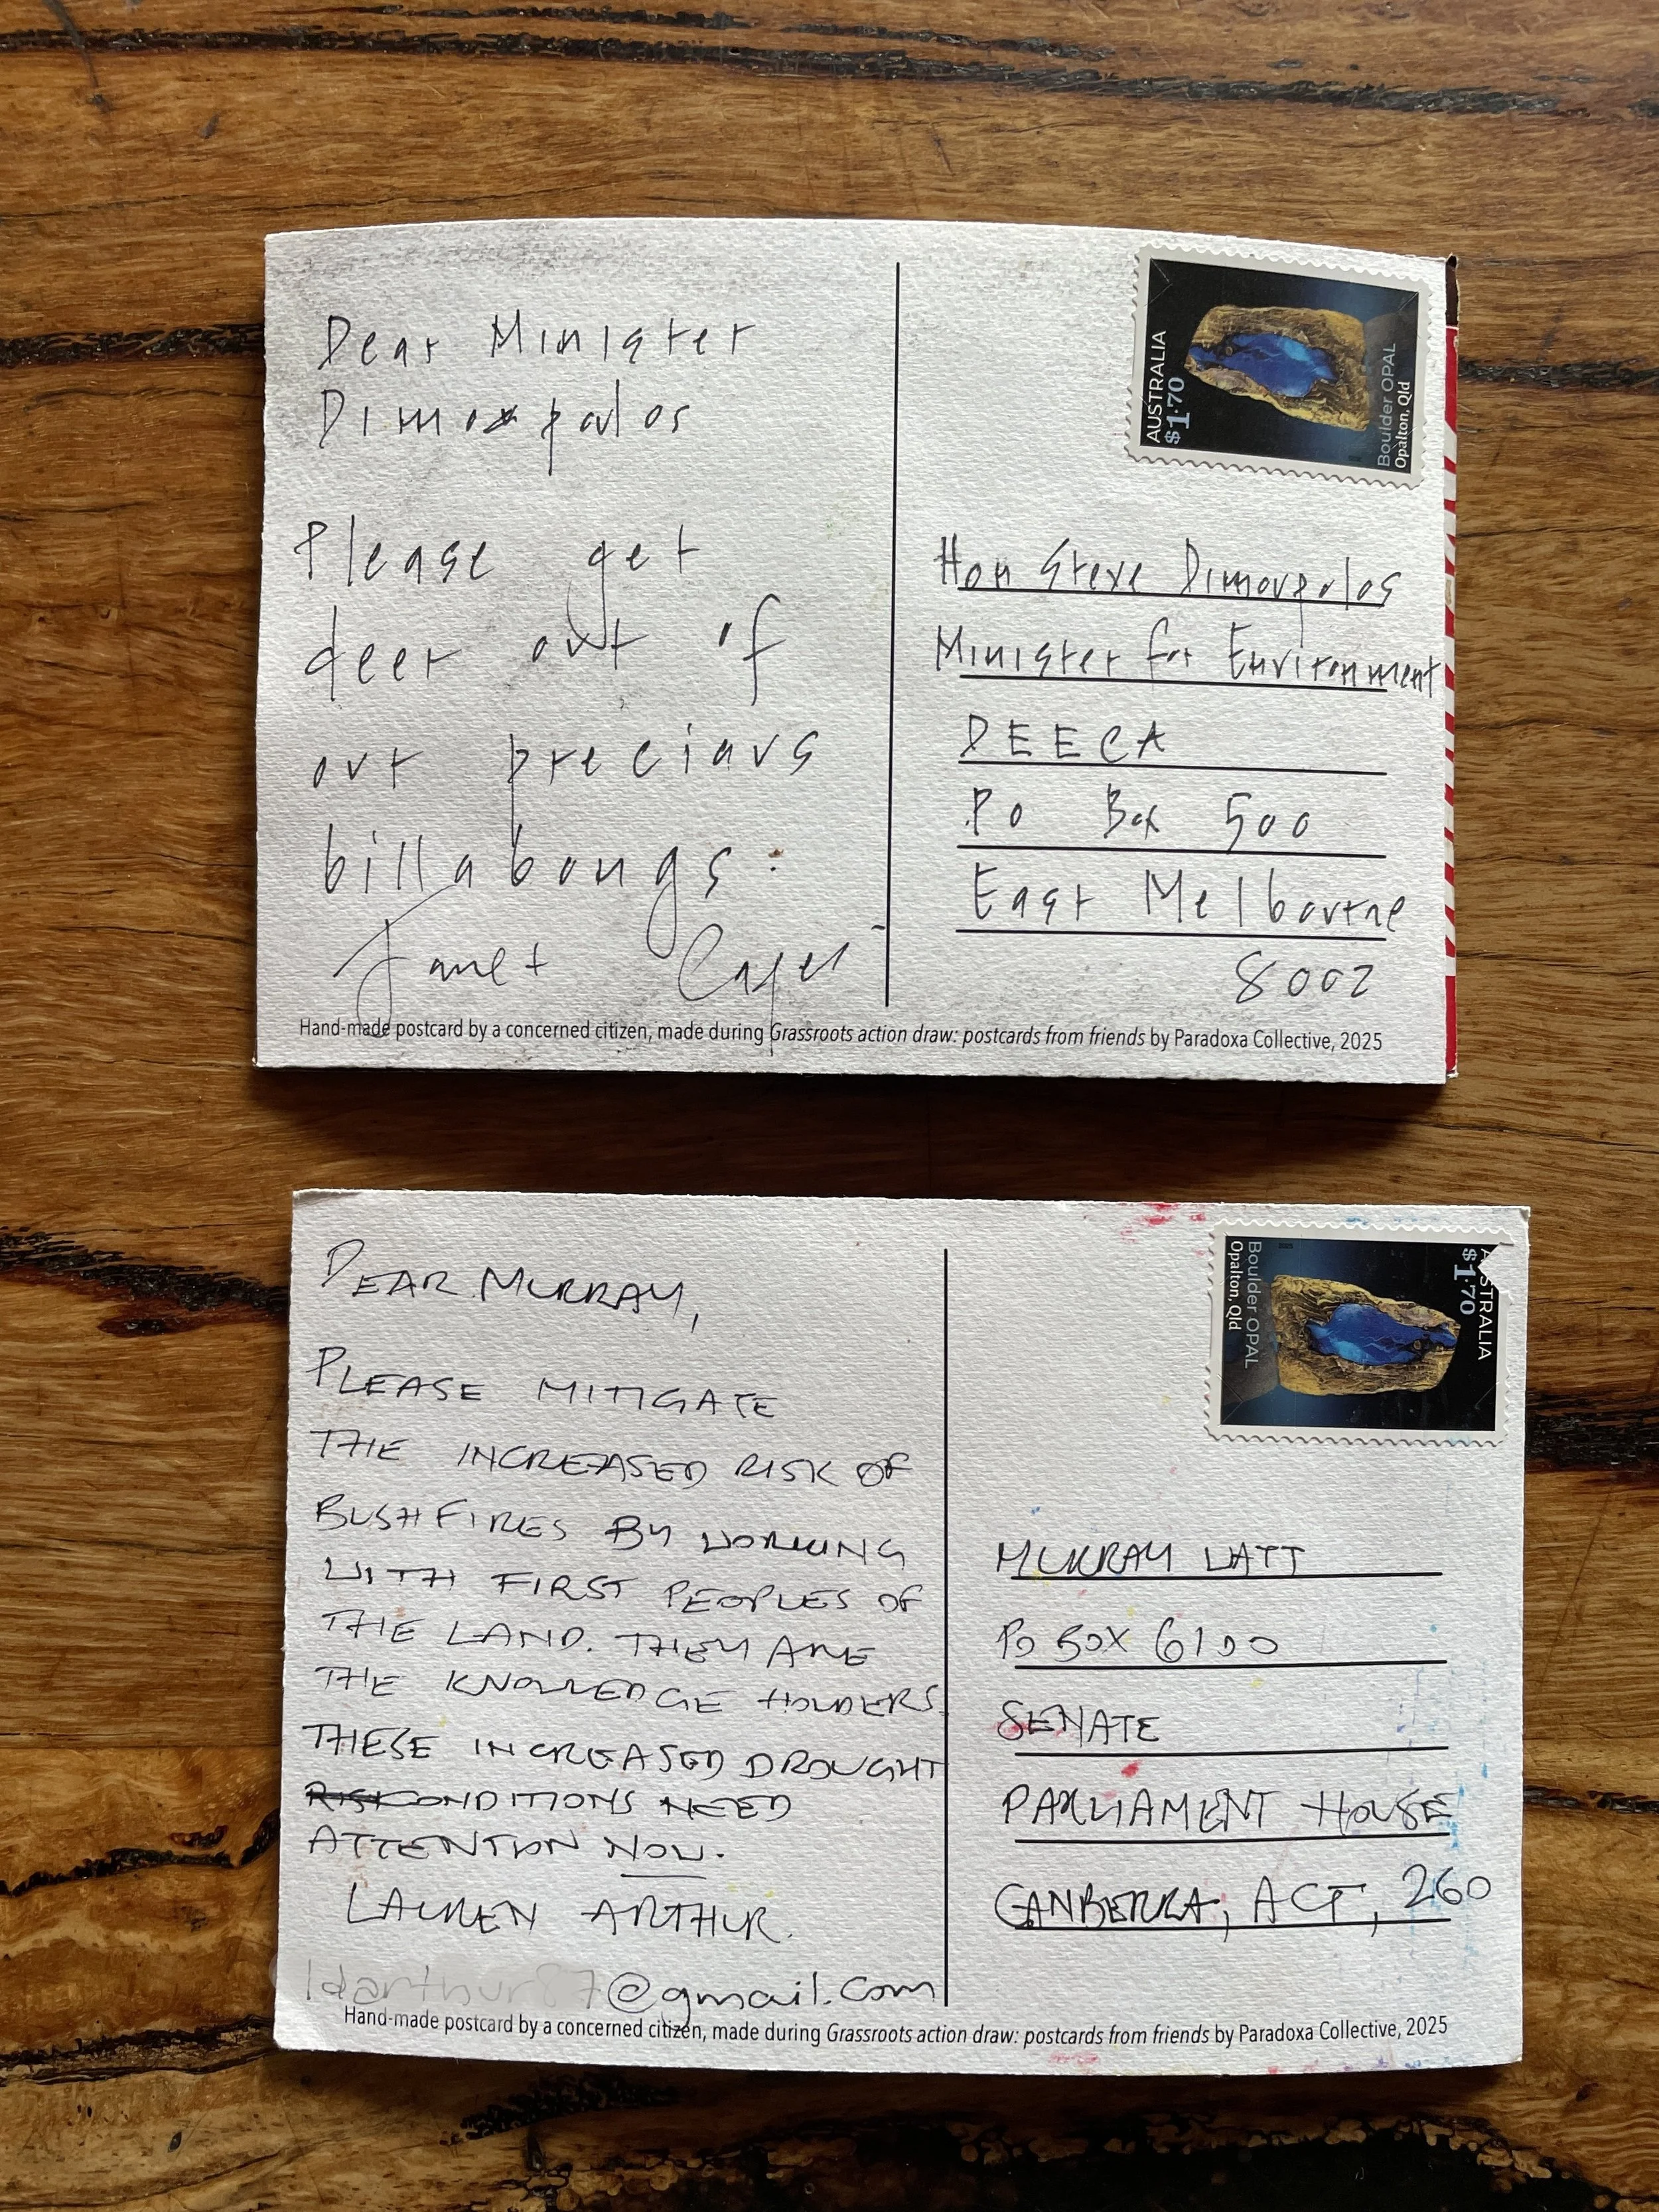 Dear Minister
Dimopolos
Please get
deer out of
our precious
billabongs.
Janet
AUSTRALIA
$1.70
Boulder OPAL
Opalton, Qld
Hon Steve Dimoupolos
Minister for Environment
DEECA
PO Box 500
East Melbourne
8002
Hand-made postcard by a concerned citizen, made during Grassroots action draw: postcards from friends by Paradoxa Collective, 2025
DEAR MURRAY,
PLEASE MITIGATE
THE INCREASED RISK OF
BUSHFIRES BY WORKING
WITH FIRST PEOPLES OF
THE LAND. THEY ARE
THE KNOWLEDGE HOLDERS.
THESE INCREASED DROUGHT
CONDITIONS NEED
ATTENTION NOW.
LAUREN ARTHUR.
@gmail.com
AUSTRALIA
$1.70
Boulder OPAL
Opalton, Qld
MURRAY WATT
PO BOX 6100
SENATE
PARLIAMENT HOUSE
CANBERRA, ACT, 260
Hand-made postcard by a concerned citizen, made during Grassroots action draw: postcards from friends by Paradoxa Collective, 2025